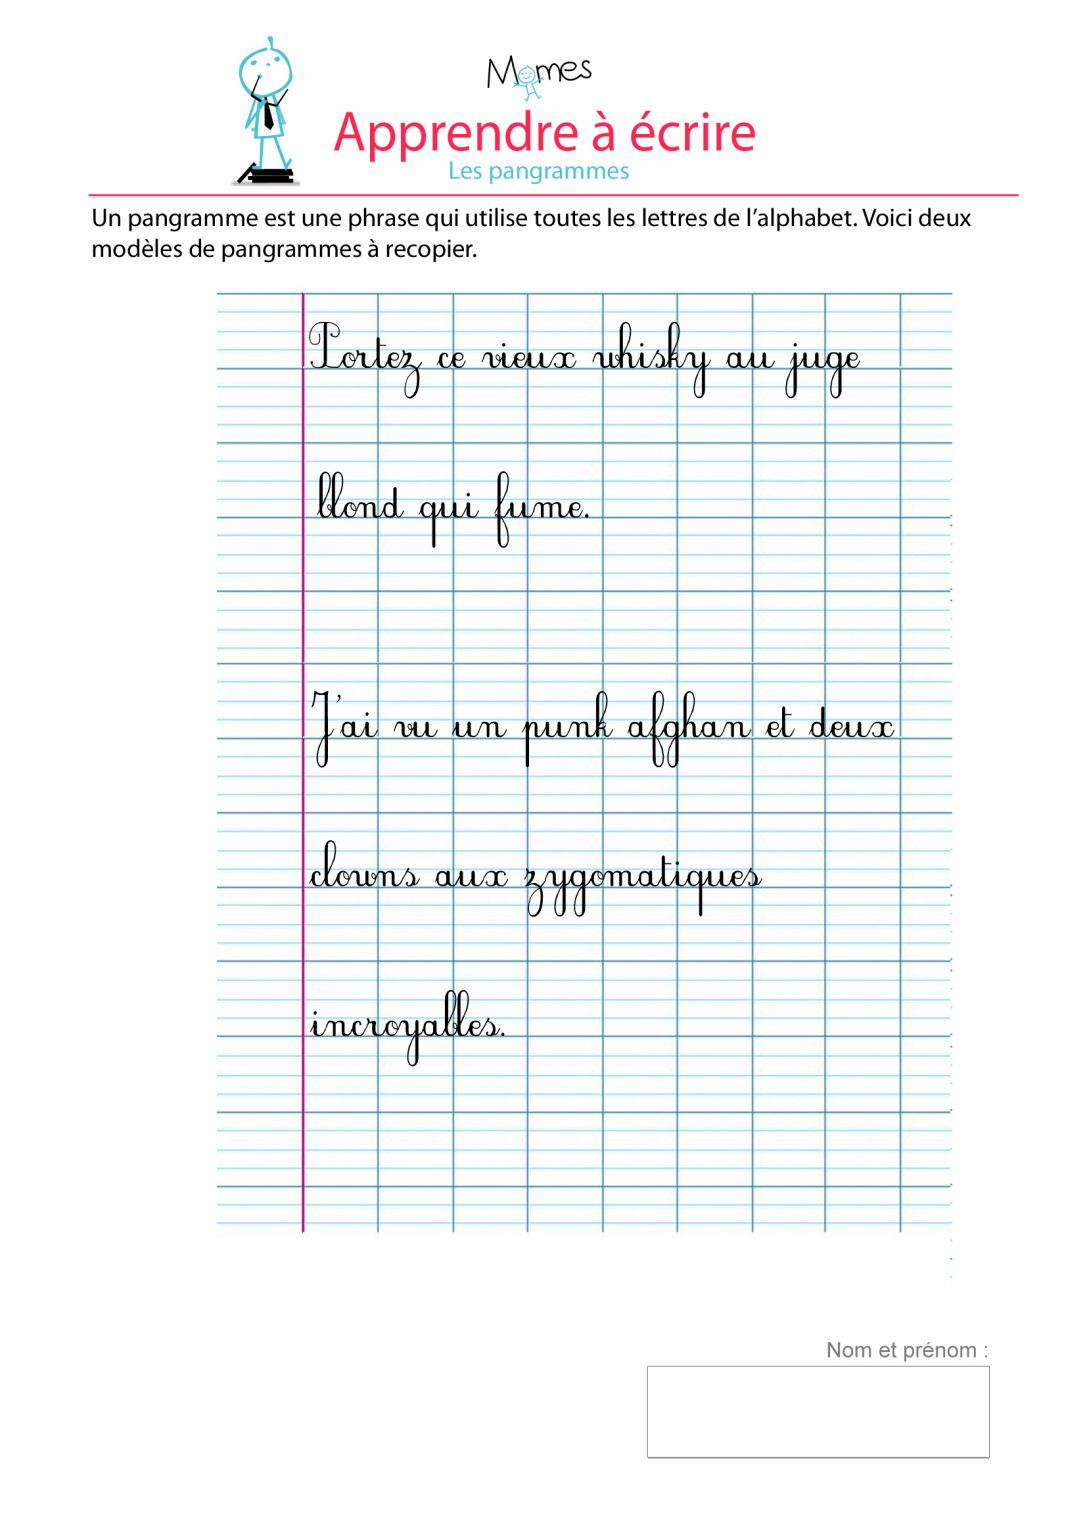 Momes
Apprendre à écrire
Les pangrammes
Un pangramme est une phrase qui utilise toutes les lettres de l’alphabet. Voici deux
modèles de pangrammes à recopier.
Portez ce vieux whisky au juge
blond qui fume.
J'ai vu un punk afghan et deux
clowns aux zygomatiques
incroyables.
Nom et prénom :